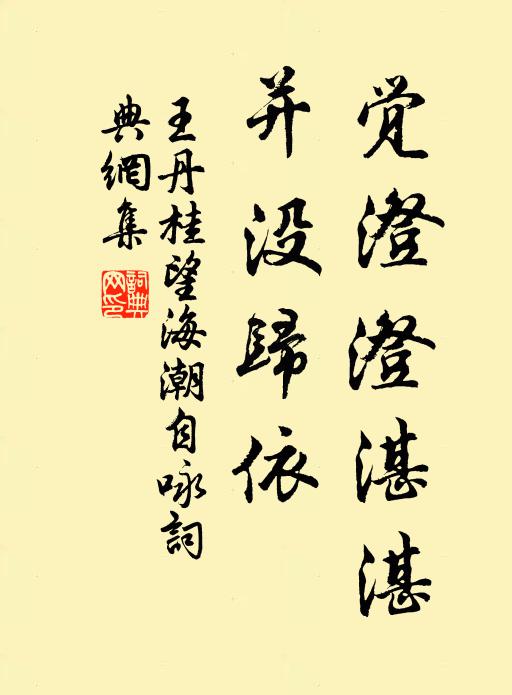 觉澄澄湛湛
并没歸依
王丹桂望海潮自咏詞
典網集
詞典
网印